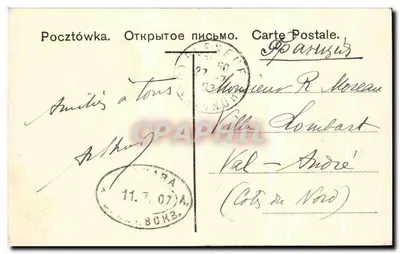 Pocztówka. Открытое письмо. Carte Postale.
Франція
Amitiés a tous
Monsieur R Moreau
Villa Lombart
Val-André
(Cotes du Nord)
11.7.07
CPAPHIL